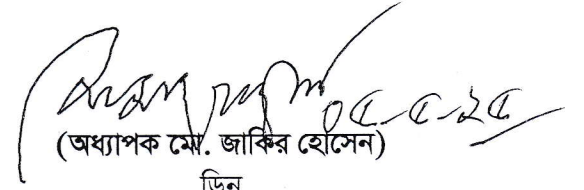 ০৫-৫-২৫
(অধ্যাপক মো. জাকির হোসেন)
ডিন